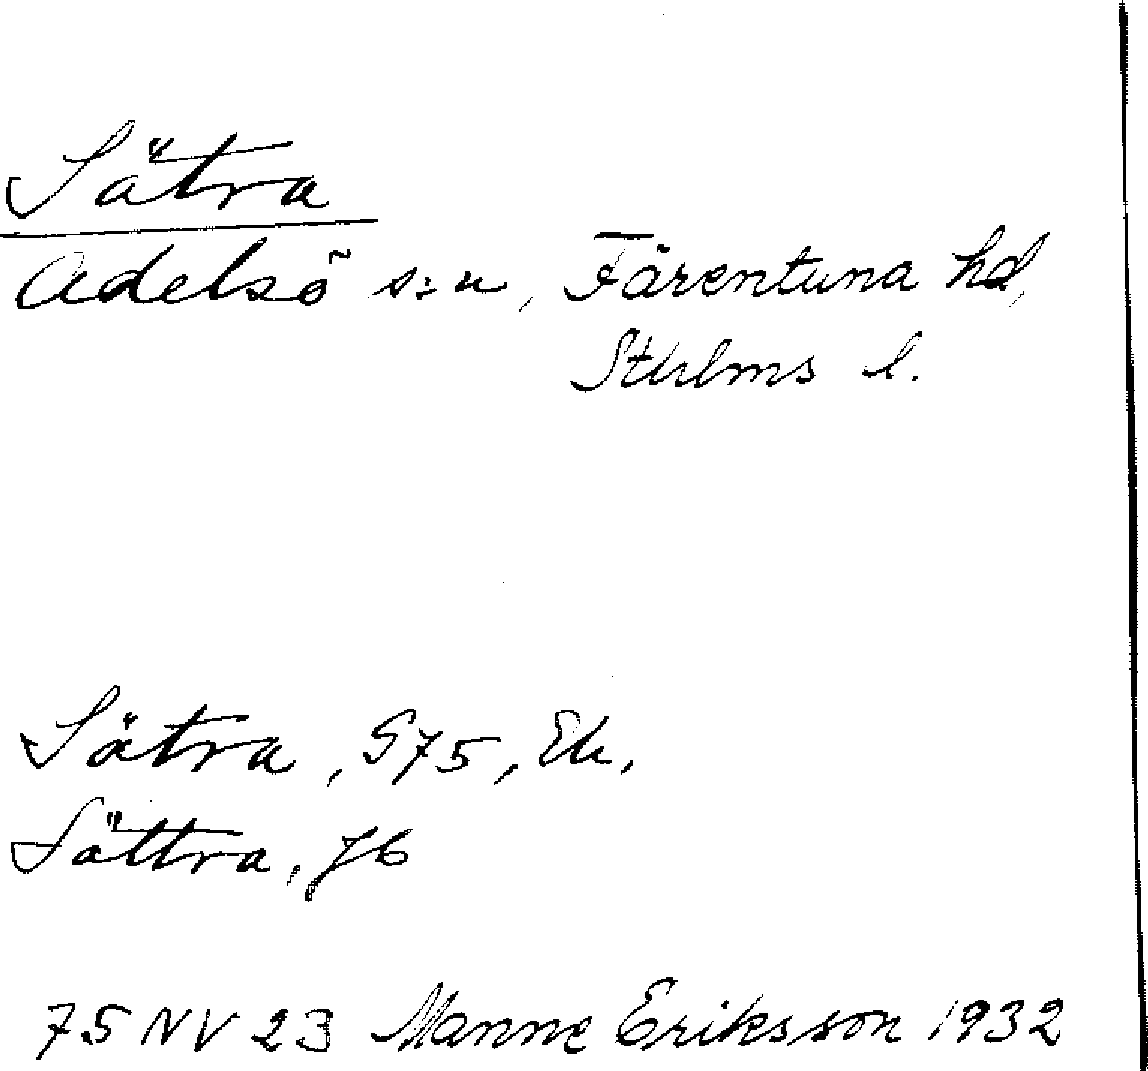 Sätra
Adelsö s:n, Färentuna hd,
Sthlms l.
Sätra, G75, Ek,
Sättra, Jb
75 NV 23 Manne Eriksson 1932